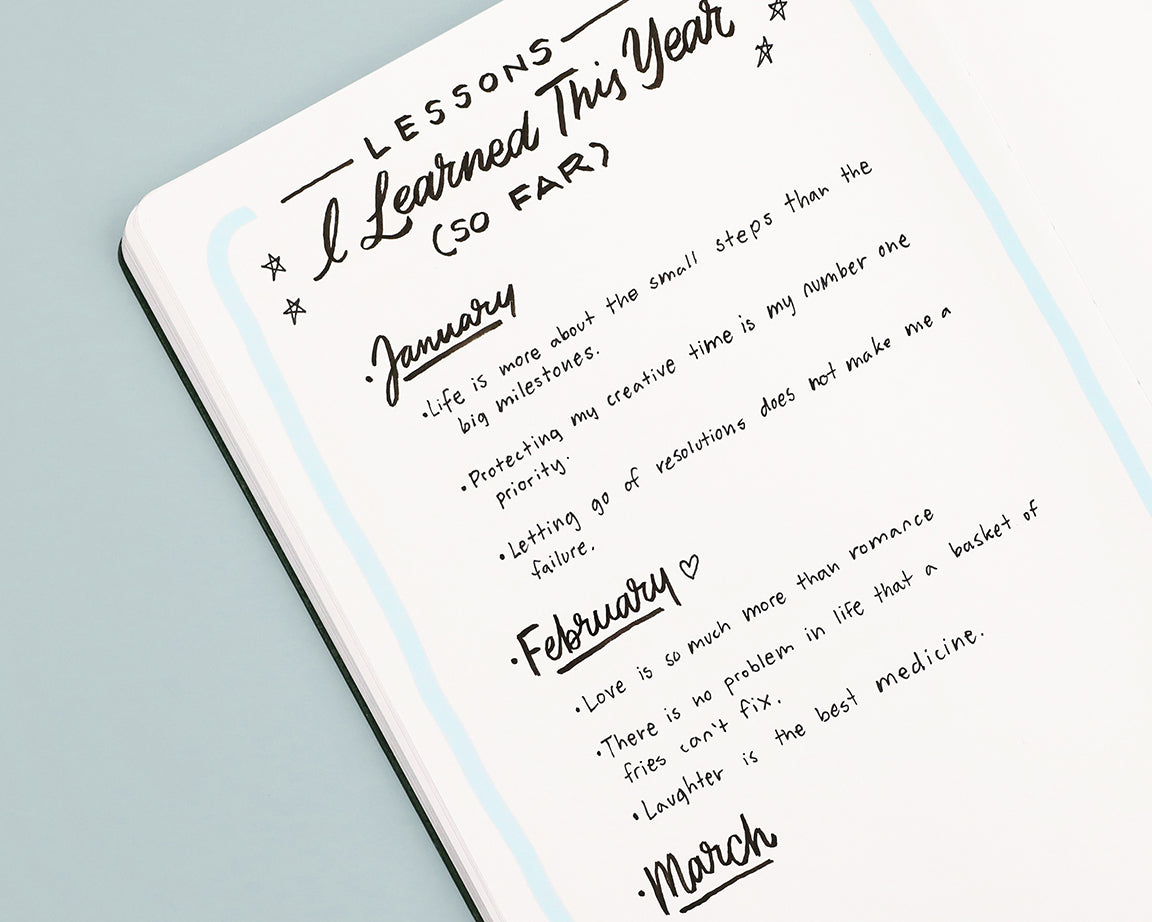 LESSONS
I Learned This Year
(SO FAR)
·January
·Life is more about the small steps than the
big milestones.
·Protecting my creative time is my number one
priority.
·Letting go of resolutions does not make me a
failure.
·February ♡
·Love is so much more than romance
·There is no problem in life that a basket of
fries can't fix.
·Laughter is the best medicine.
·March